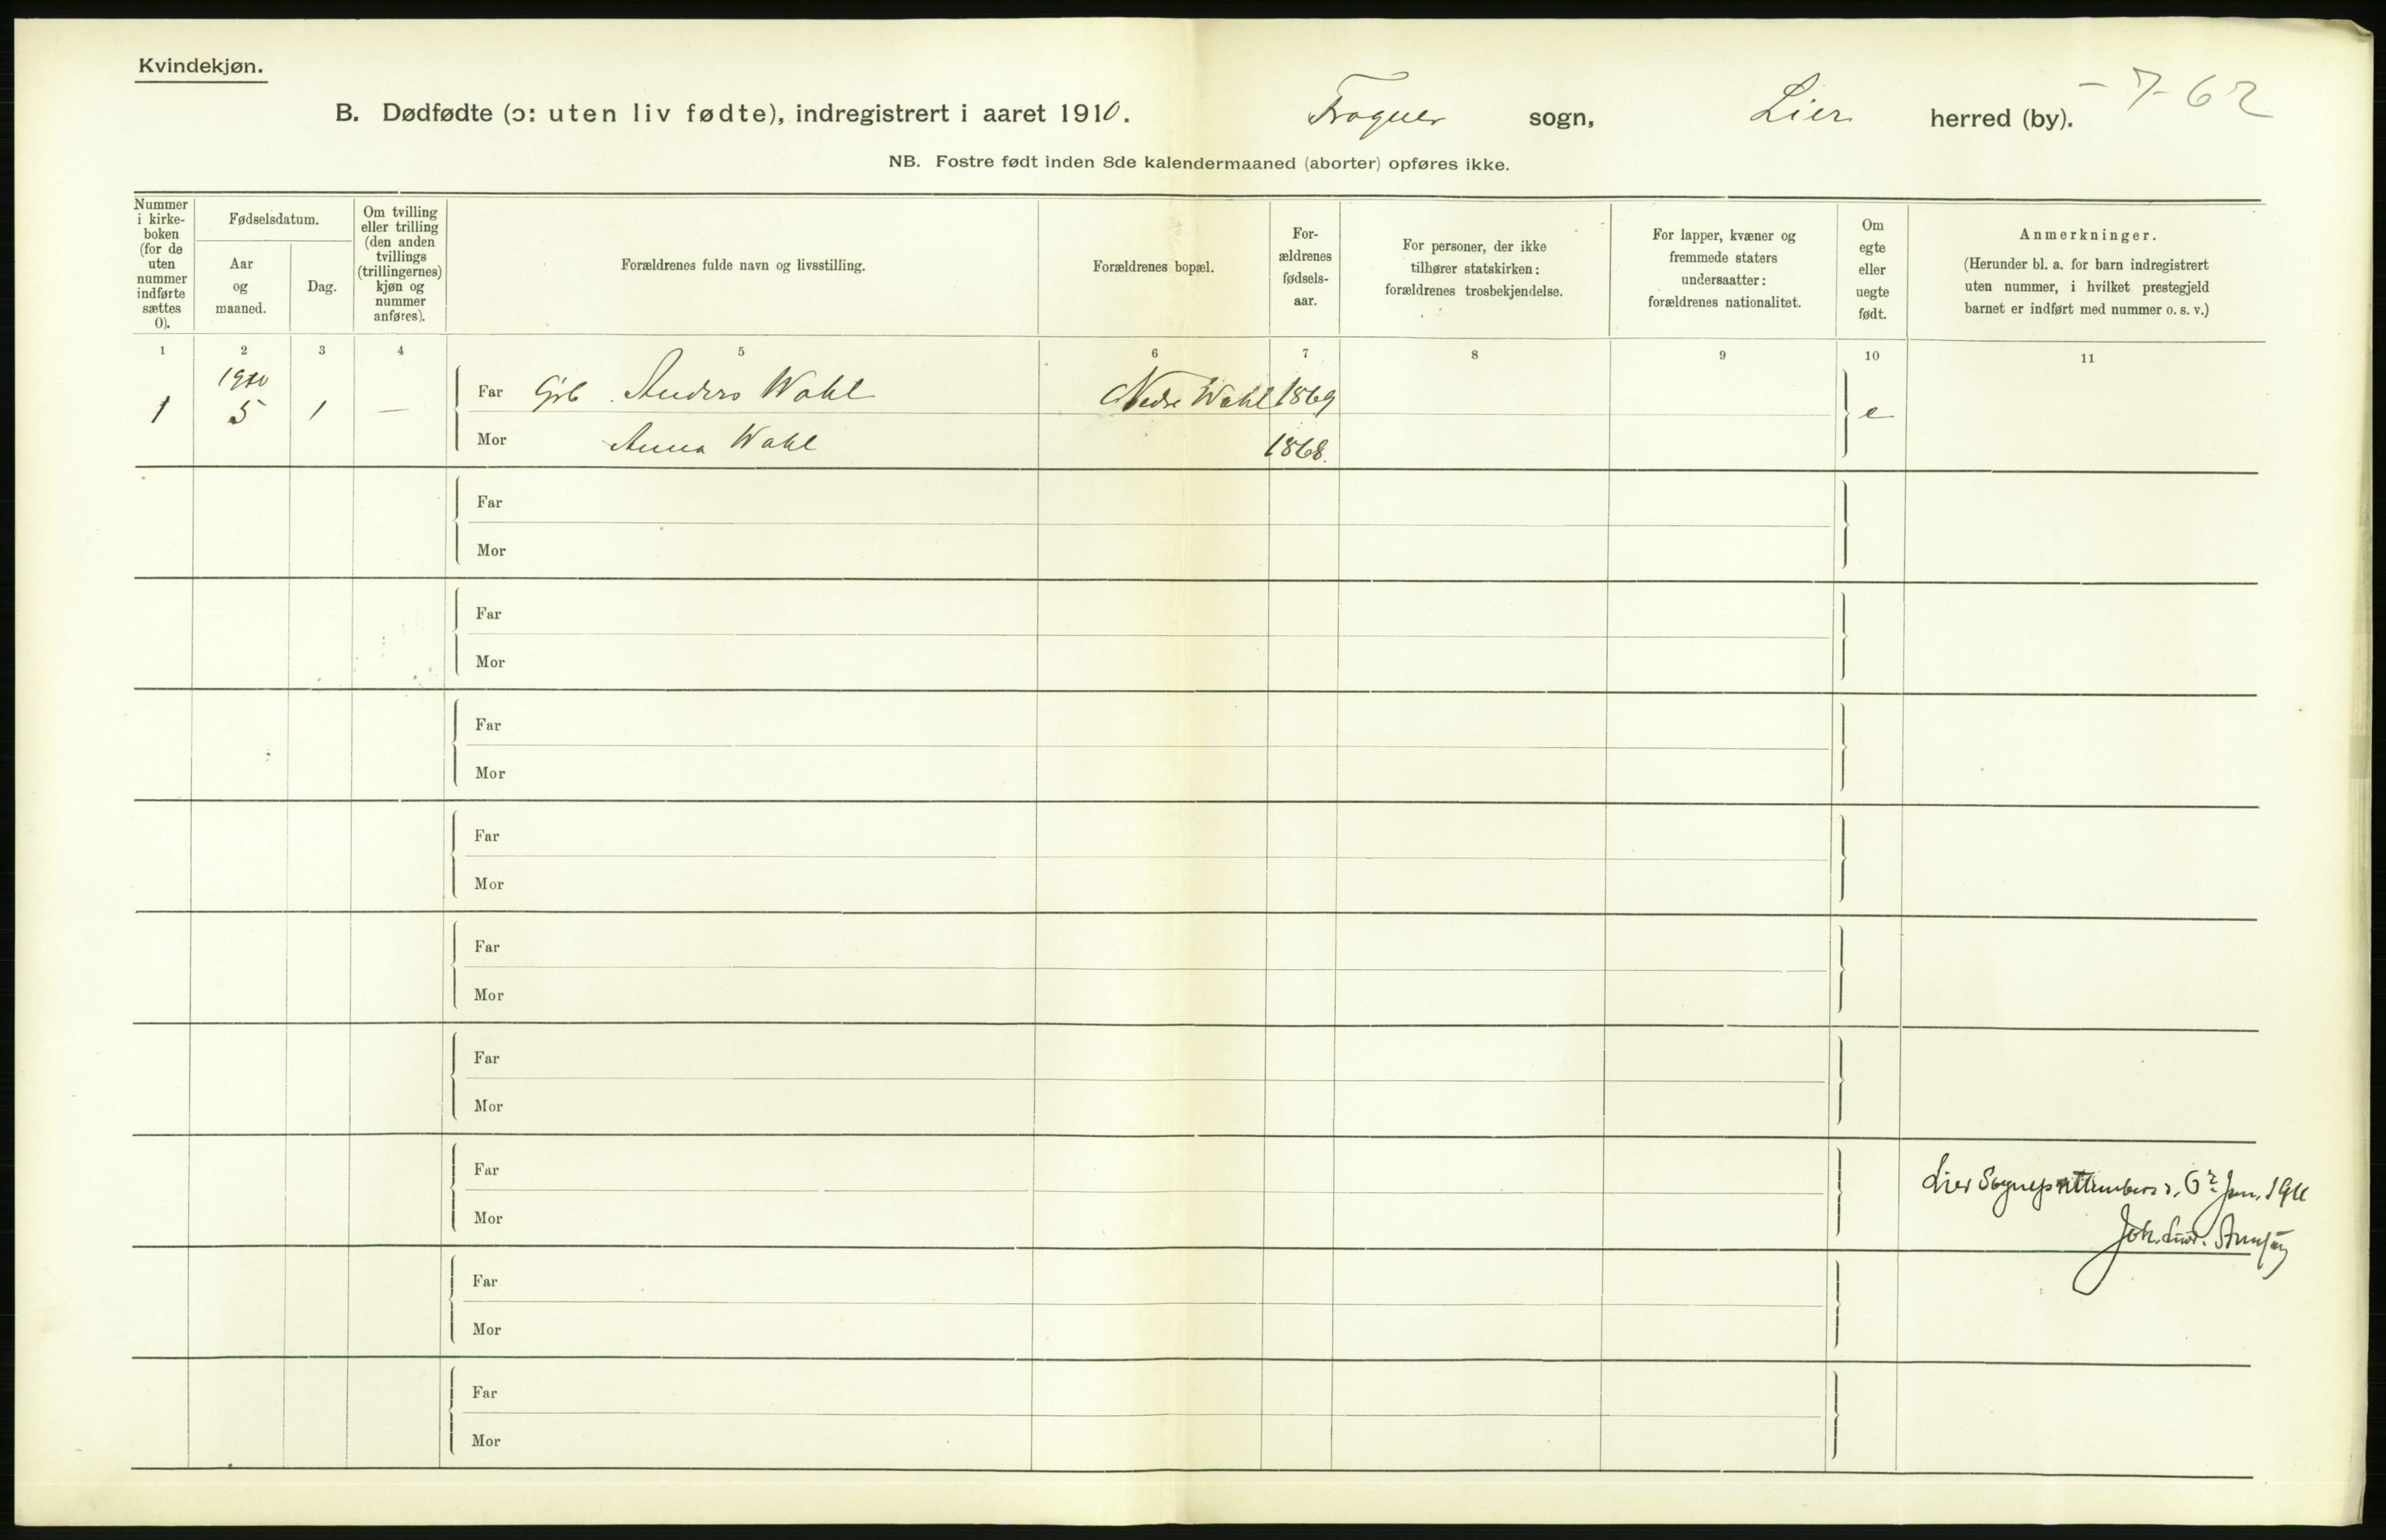 Kvindekjøn.
B. Dødfødte (ɔ: uten liv fødte), indregistrert i aaret 1910. Frogner sogn, Lier herred (by). - 7-62
NB. Fostre født inden 8de kalendermaaned (aborter) opføres ikke.
Nummer
i kirke-
boken
(for de
uten
nummer
indførte
sættes
0).
Fødselsdatum.
Aar
og
maaned.
Dag.
Om tvilling
eller trilling
(den anden
tvillings
(trillingernes)
kjøn og
nummer
anføres).
Forældrenes fulde navn og livsstilling.
Forældrenes bopæl.
For-
ældrenes
fødsels-
aar.
For personer, der ikke
tilhører statskirken:
forældrenes trosbekjendelse.
For lapper, kvæner og
fremmede staters
undersaatter:
forældrenes nationalitet.
Om
egte
eller
uegte
født.
Anmerkninger.
(Herunder bl. a. for barn indregistrert
uten nummer, i hvilket prestegjeld
barnet er indført med nummer o. s. v.)
1 2 3 4 5 6 7 8 9 10 11
1910
1 5 1 — Far Grb. Anders Wahl Nedre Wahl 1869 e
Mor Anna Wahl 1868.
Far
Mor
Far
Mor
Far
Mor
Far
Mor
Far
Mor
Far
Mor
Far
Mor
Lier 6 Jan. 1911
Joh.
Far
Mor
Far
Mor